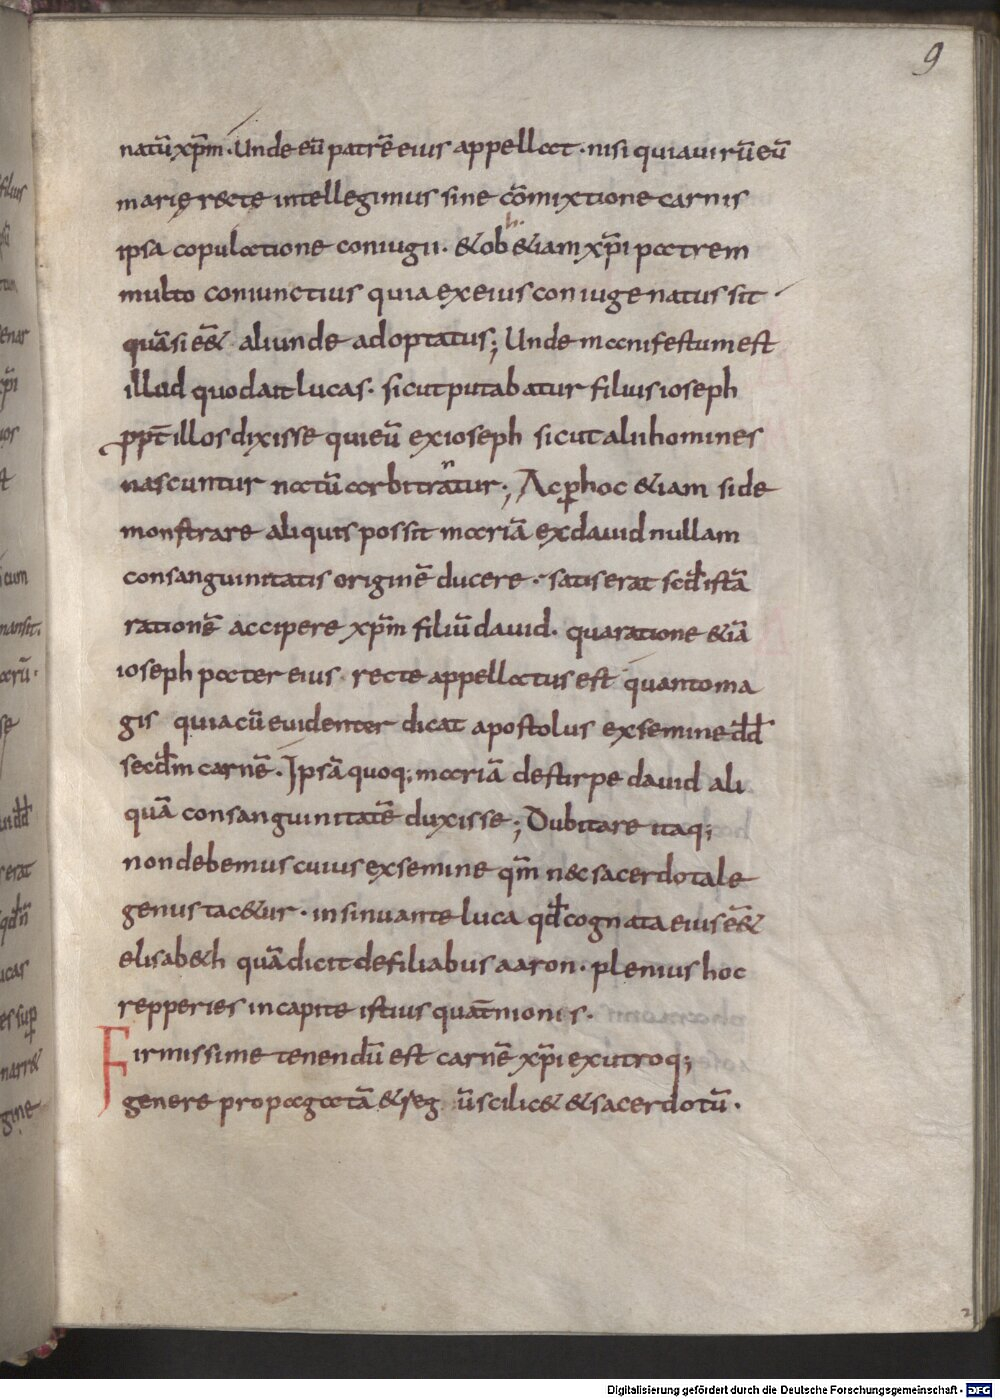 9
natū xp̄m · Unde eū patrē eius appellat · nisi quia uirū eū
marię recte intellegimus sine cōmixtione carnis
ipsa copulatione coniugii · & ob h· &iam xp̄i patrem
multo coniunctius quia ex eius coniuge natus sit
quā si eē& aliunde adoptatus; Unde manifestum est
illud quod ait lucas · sicut putabatur filius ioseph
ppt̄ illos dixisse qui eū ex ioseph sicut alii homines
nascuntur natū arbitrantur; Ac ꝑ hoc &iam si de
monstrare aliquis possit mariā ex dauid nullam
consanguinitatis originē ducere · sat erat scđ istā
rationē accipere xp̄m filiū dauid · qua ratione &iā
ioseph pater eius recte appellatus est quanto ma
gis quia cū euidenter dicat apostolus ex semine dđ
secđm carnē · Ipsā quoq; mariā de stirpe dauid ali
quā consanguinitatē duxisse; Dubitare itaq;
non debemus cuius ex semine qm̄ nec sacerdotale
genus tac&ur · insinuante luca qđ cognata eius eē&
elisab&h quā dicit de filiabus aaron · plenius hoc
repperies in capite istius quat̄nionis ·
Firmissime tenendū est carnē xp̄i ex utroq;
genere propagatā & reg ū scilic& & sacerdotū ·
filius
enar
xp̄i
cum
mansit.
arū ·
se
dđ
erat
ucas
es sup
narr&
gine
2
Digitalisierung gefördert durch die Deutsche Forschungsgemeinschaft - DFG